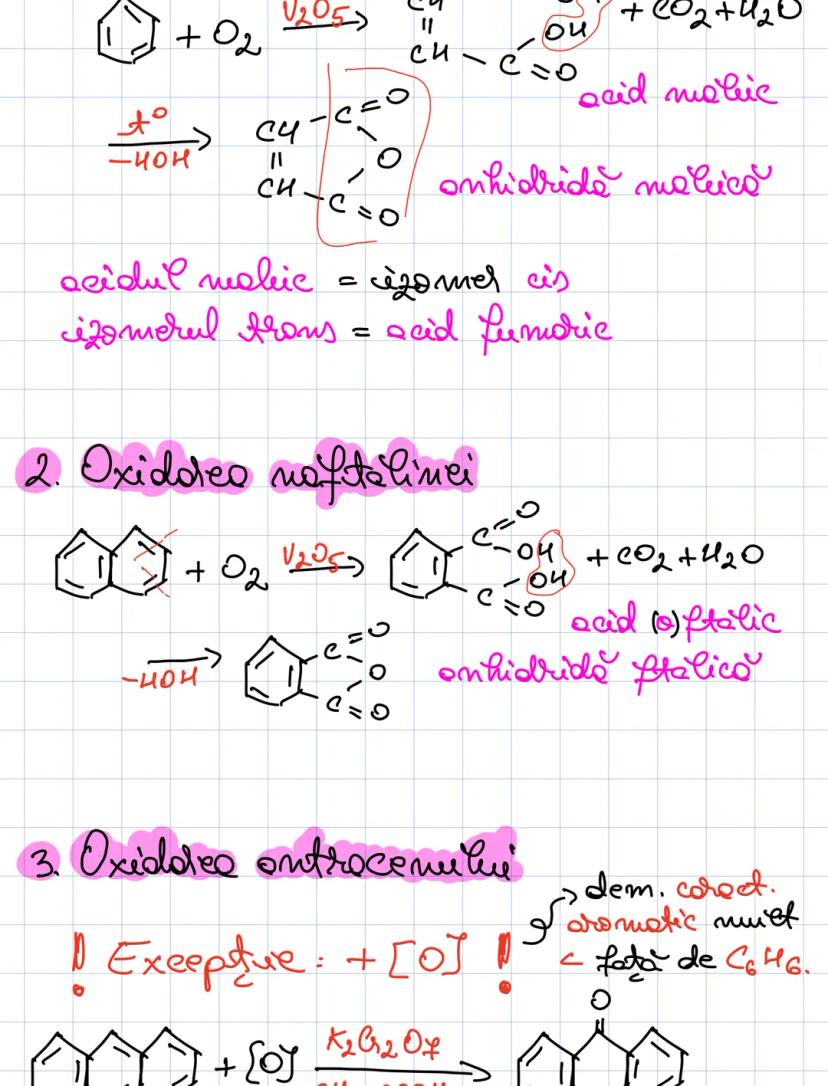 CH
+ O2 V2O5 → || OH + CO2 + H2O
CH - C = O
acid maleic
t°
-HOH →
CH - C = O
|| O
CH - C = O
anhidridă maleică
acidul maleic = izomer cis
izomerul trans = acid fumaric
2. Oxidarea naftalinei
+ O2 V2O5 →
C = O
- OH
- OH
C = O
+ CO2 + H2O
acid (o)ftalic
-HOH →
C = O
O
C = O
anhidridă ftalică
3. Oxidarea antracenului
→ dem. caract.
aromatic mult
< față de C6H6.
! Excepție: + [O] !
O
+ [O] K2Cr2O7 →